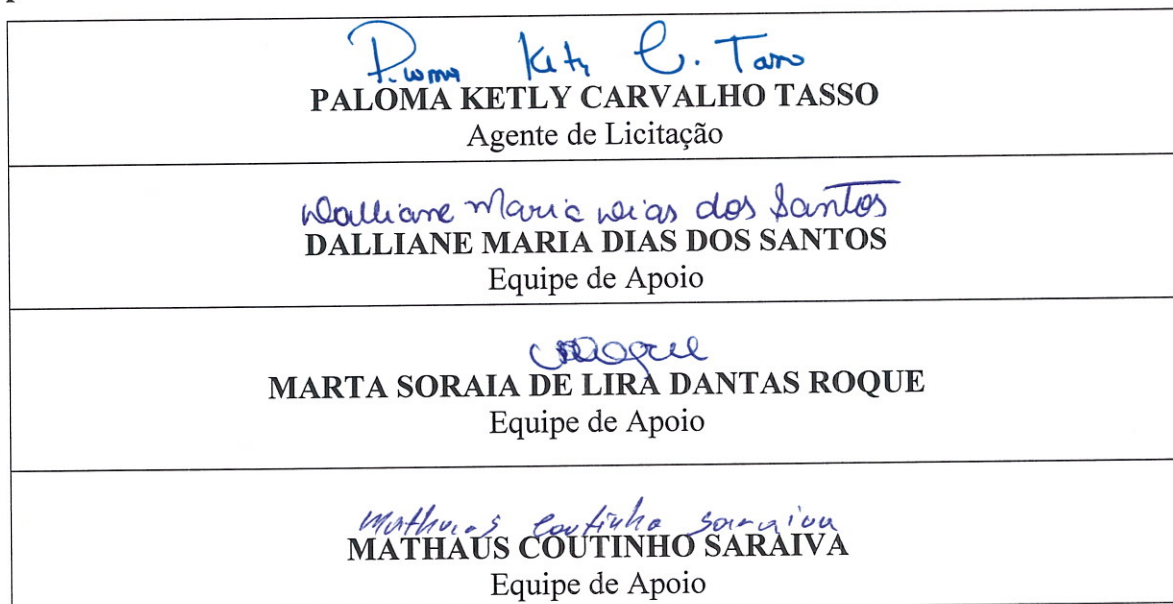 Paloma Ketly C. Tasso
PALOMA KETLY CARVALHO TASSO
Agente de Licitação
Dalliane Maria Dias dos Santos
DALLIANE MARIA DIAS DOS SANTOS
Equipe de Apoio
MARTA SORAIA DE LIRA DANTAS ROQUE
Equipe de Apoio
Mathaus Coutinho Saraiva
MATHAUS COUTINHO SARAIVA
Equipe de Apoio